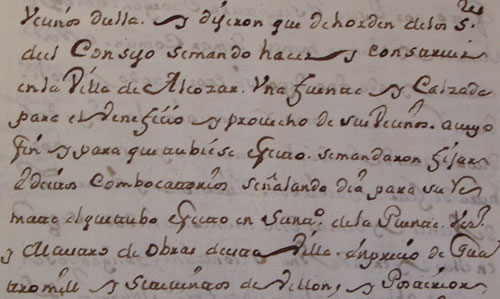 Vecinos della. y dijeron que de horden de los S.res
del Consejo se mando hacer y construir
en la Villa de Alcozar. Una fuente y Calzada
para el Veneficio y provecho de sus Vecinos. a cuyo
fin y para que tubiese efecto. se mandaron fijar
Edictos Combocatorios señalando dia para su Re
mate el que tubo efecto en de la Puente. Vez.º
y Maestro de obras de esta Villa. en precio de Qua
tro mill y Seiscientos de Vellon, y Posteriorm